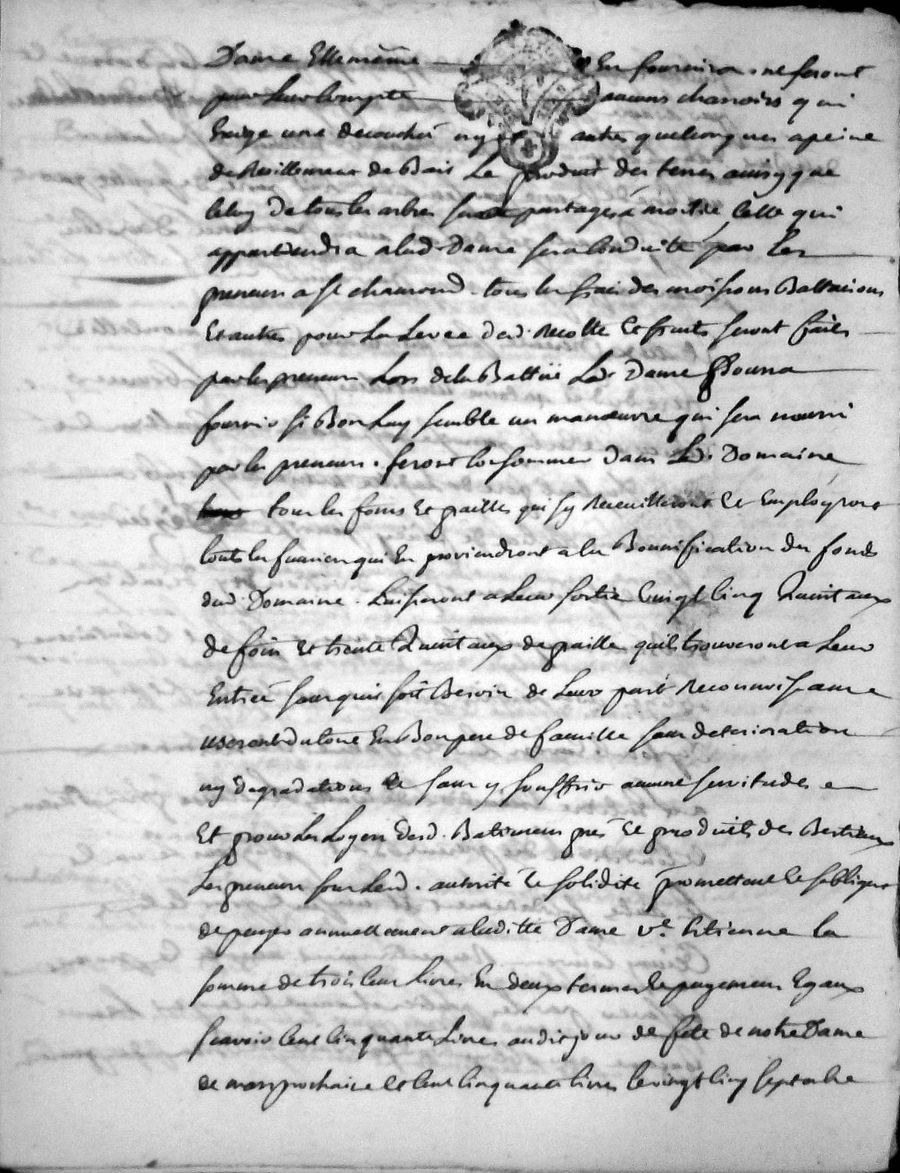 Dame Elle même En fournira, ne feront
pour leur compte aucuns charrois qui
Exige une decouchée ny autres quelconques a peine
de Resiliement de Bail Le produit des terres ainsy que
celuy de tous les arbres sera partagés a moitié Celle qui
appartiendra a lad. Dame sera Conduite par les
preneurs a St chamond. tous les frais des moissons Battaisons
Et autres pour La Levée desd. Recolte Et fruits seront faits
par les preneurs Lors de la Battüe Lad. Dame pourra
fournir si Bon Luy semble un manœuvre qui sera nourri
par les preneurs. feront Consommer dans Led. Domaine
tous les foins Et pailles qui s'y Recueilleront Et Employront
touts les fumiers qui En proviendront a la Bonnification des fonds
dud. Domaine. Laisseront a Leur sortie Vingt Cinq Quintaux
de foin Et trente Quintaux de paille quils trouveront a Leur
Entrée sans quil soit Besoin de Leur part Reconnoissance
useront du tout En Bon pere de famille sans deterioration
ny degradations Et sans y souffrir aucune servitudes
Et pour Les Loyers desd. Batiments prés Et produits des Bestiaux
Les preneurs sous Lesd. autorité Et solidité promettent Et s'obligent
de payer annuellement a laditte Dame ve. Etienne la
somme de trois Cent Livres En deux termes Et payements Egaux
scavoir Cent Cinquante Livres audit jour de fête de notre Dame
de mars prochaine Et Cent Cinquante livres le vingt Cinq septembre